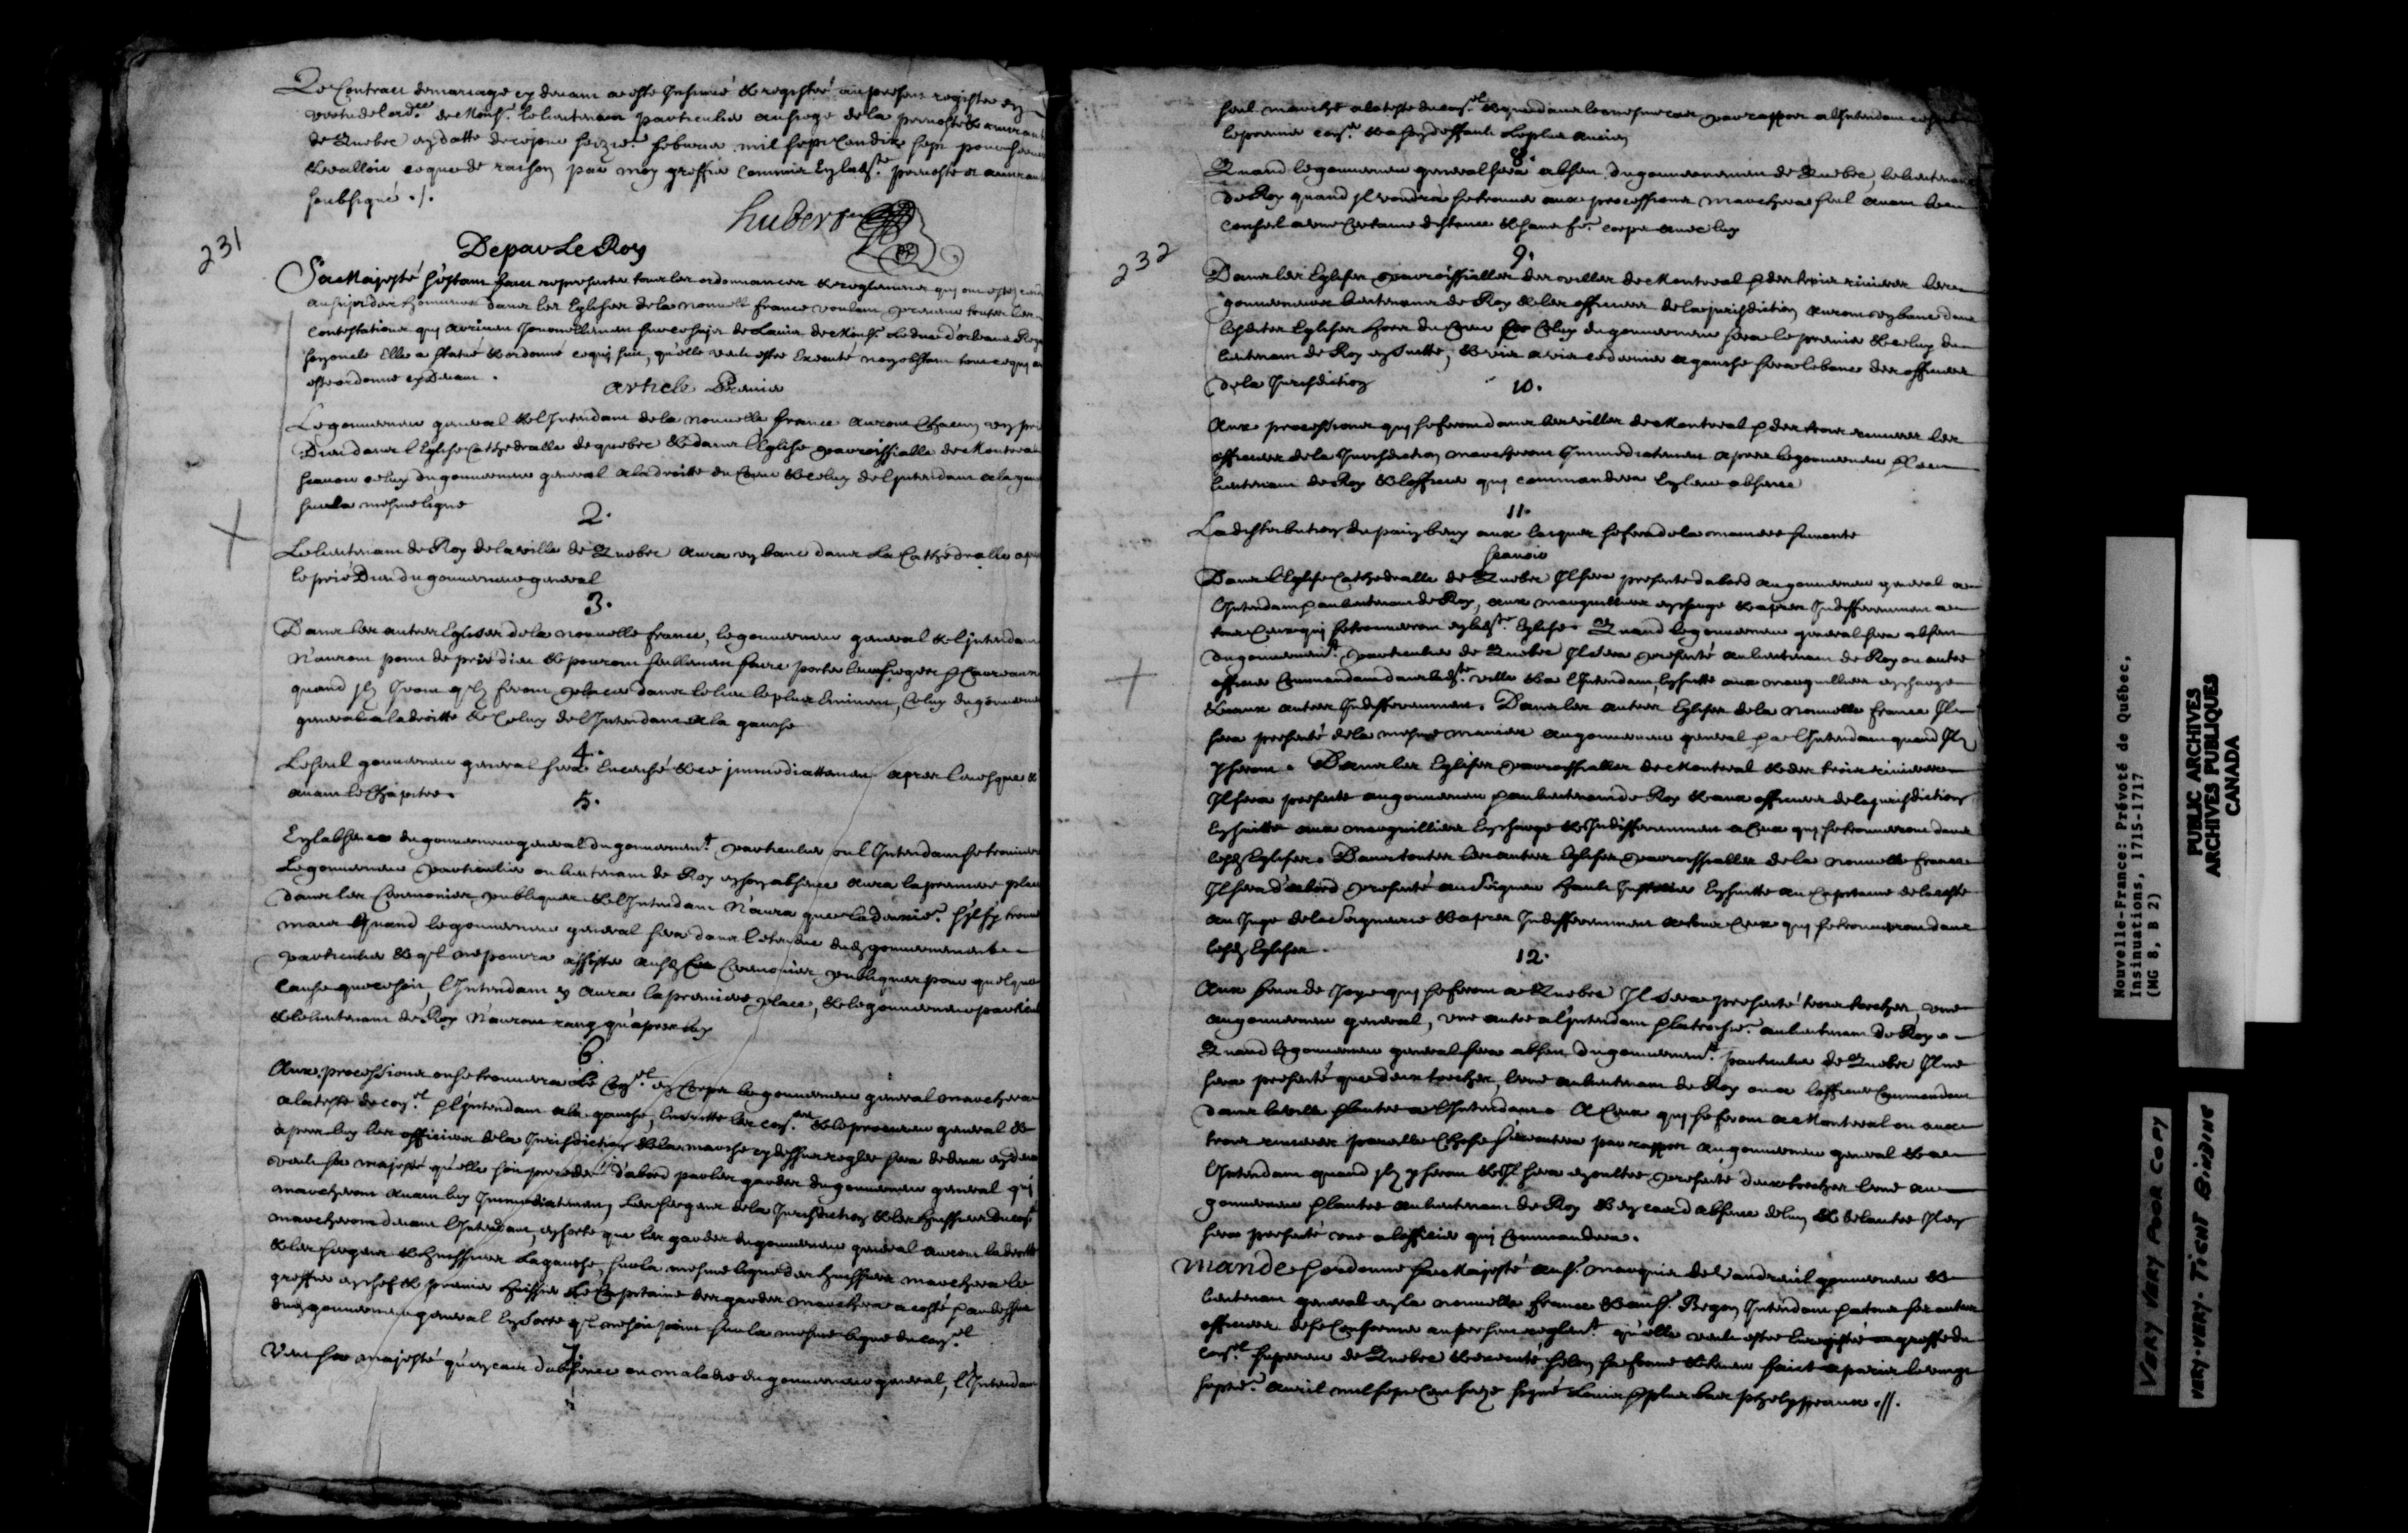 Le Contract de mariage cy devant a esté Insinué & registré au present registre en
vertu de l'ord.ce de Mons.r le lieutenant particulier au siege de la prevosté & amirauté
de Quebec en datte de ce jour seizie.e febvrier mil sept cent dix sept pour servir
& valloir ce que de raison par moy greffier commis en lad.te prevosté et amirauté
soubsigné ./.
hubert
231
De par Le Roy
Sa Majesté s'estant fait representer tous les ordonnances & reglemens qui ont estez rendu
au sujet des honneurs dans les Eglises de la nouvelle france voulant prevenir toutes les
contestations qui arrivent journellement sur ce sujet de L'avis de Mons.r Le duc d'orleans Regent
son oncle Elle a statué & ordonné ce qui suit, qu'elle veut estre Executé nonobstant tout ce qui a
esté ordonné cy devant .
article Premier
Le gouverneur general & l'Intendant de la nouvelle france auront chacun un prie
Dieu dans l'Eglise Cathedralle de quebec & dans l'Eglise parroissialle de Montreal
scavoir celuy du gouverneur general a la droitte du Cœur & celuy de l'Intendant a la gauche
sur la mesme ligne
2.
Le lieutenant de Roy de la ville de Quebec aura un banc dans La Cathedralle apres
le prié Dieu du gouverneur general
3.
Dans les autres Eglises de la nouvelle france, le gouverneur general & l'Intendant
N'auront point de prié dieu & pouront seullement faire porter leurs sieges & Carreaux
quand ils Iront qu'ils feront placer dans le lieu le plus Eminent, Celuy du gouverneur
general a la droitte & Celuy de l'Intendant a la gauche
4.
Le seul gouverneur general sera Encensé & ce immediattement apres L'evesque &
avant le Chapitre.
5.
En l'absence du gouverneur general du gouvernem.t particulier ou l'Intendant se trouvera
Le gouverneur particulier ou lieutenant de Roy en son absence aura la premiere place
dans les Ceremonies publiques & l'Intendant N'aura que la dernie.e s'il s'y trouve
mais Quand le gouverneur general sera dans l'etendue dud. gouvernement
particulier & qu'il ne pourra assister ausd. Ceremonies publiques pour quelque
cause que ce soit, l'Intendant y aura la premiere place, & le gouverneur particulier
& le lieutenant de Roy N'auront rang qu'apres luy
6.
Aux processions ou se trouvera Le con.el en Corps le gouverneur general marchera
a la teste du con.el & l'Intendant a la gauche, Ensuitte les con.ers & le procureur general &
apres luy les officiers de la Jurisdiction & la marche cy dessus reglée sera de deux en deux
veut sa majesté qu'elle soit precedée d'abord par les gardes du gouverneur general qui
marcheront avant luy Immediatement, Les sergens de la Jurisdiction & les huissiers du con.el
marcheront devant l'Intendant, en sorte que les gardes du gouverneur general auront la droitte
& les sergens & huissiers La gauche, sur la mesme ligne des huissiers marchera le
greffier en chef & premier huissier & Le Capitaine des gardes marchera a costé & au dessus
dud. gouverneur general En sorte qu'il ne soit point sur la mesme ligne du con.el
7.
Veut sa majesté qu'en cas d'absence ou maladie du gouverneur general, l'Intendant
seul marche a la teste du con.el & que dans le mesme cas par rapport a l'Intendant ce soit
le premier con.er & a son deffault Le plus ancien
8.
Quand le gouverneur general sera absent du gouvernement de Quebec, le lieutenant
de Roy quand il voudra se trouver aux processions marchera seul avant le
conseil a une certaine distance & sans fe.e corps avec luy
232
9.
Dans les Eglises parroissialles des villes de Montreal & des trois rivieres les
gouverneurs lieutenans de Roy & les officiers de la jurisdiction auront un banc dans
lesdites Eglises hors du Cœur Celuy du gouverneur sera le premier & celuy du
lieutenant de Roy ensuitte, & vis a vis ce dernier a gauche sera le banc des officiers
de la Jurisdiction
10.
Aux processions qui se feront dans les villes de Montreal & des trois rivieres les
officiers de la Jurisdiction marcheront Immediatement apres le gouverneur & le
lieutenant de Roy & l'officier qui commandera En leur absence
11.
La distribution du pain beny aux laiques se fera de la maniere suivante
scavoir
Dans l'Eglise Cathedralle de Quebec Il sera presenté d'abord au gouverneur general a
l'Intendant & au lieutenant de Roy, aux marguilliers en charge & apres Indifferemment a
tous Ceux qui se trouveront en lad.te Eglise. Quand le gouverneur general sera absent
du gouvernem.t particulier de Quebec Il sera presenté au lieutenant de Roy ou autre
officier Commandant dans lad.te ville & a l'Intendant, Ensuitte aux marguilliers en charge
& aux autres Indifferemment. Dans les autres Eglises de la nouvelle france Il
sera presenté de la mesme maniere au gouverneur general & a l'Intendant quand Ils
y seront. Dans les Eglises parroissialles de Montreal & des trois rivieres
Il sera presenté au gouverneur & au lieutenant de Roy & aux officiers de la jurisdiction
Ensuitte aux marguilliers En charge & Indifferemment a Ceux qui se trouveront dans
lesd. Eglises. Dans toutes les autres Eglises parroissialles de la nouvelle france
Il sera d'abord presenté au Seigneur haut Justicier Ensuitte au Capitaine de la coste
au Juge de la Seigneurie & apres Indifferemment a tous Ceux qui se trouveront dans
lesd. Eglises.
12.
Aux feux de Joye qui se feront a Quebec Il sera presenté trois torches, une
au gouverneur general, une autre a l'Intendant & la troisie.e au lieutenant de Roy.
Quand le gouverneur general sera absent du gouvernem.t particulier de Quebec Il ne
sera presenté que deux torches, l'une au lieutenant de Roy ou a l'officier Commandant
dans la ville & l'autre a l'Intendant. A Ceux qui se feront a Montreal ou aux
trois rivieres pareille Chose s'executera par rapport au gouverneur general & a
l'Intendant quand ils y seront & Il sera en oultre presenté deux torches l'une au
gouverneur & l'autre au lieutenant de Roy & en cas d'absence de l'un & de l'autre Il en
sera presenté une a l'officier qui Commandera.
Mande & ordonne sa Majesté au S.r marquis de Vaudreuil gouverneur &
lieutenant general en la nouvelle france & au S.r Begon Intendant & a tous ses autres
officiers de se Conformer au present reglem.t qu'elle veut estre Enregistré au greffe du
con.el superieur de Quebec & executé selon sa forme & teneur faict a paris le vingt
septie.e avril mil sept cent seize signé Louis & plus bas phelypeaux .//.
Nouvelle-France: Prévoté de Québec,
Insinuations, 1715-1717
(MG 8, B 2)
PUBLIC ARCHIVES
ARCHIVES PUBLIQUES
CANADA
VERY VERY POOR COPY
VERY-VERY-TIGHT BINDING